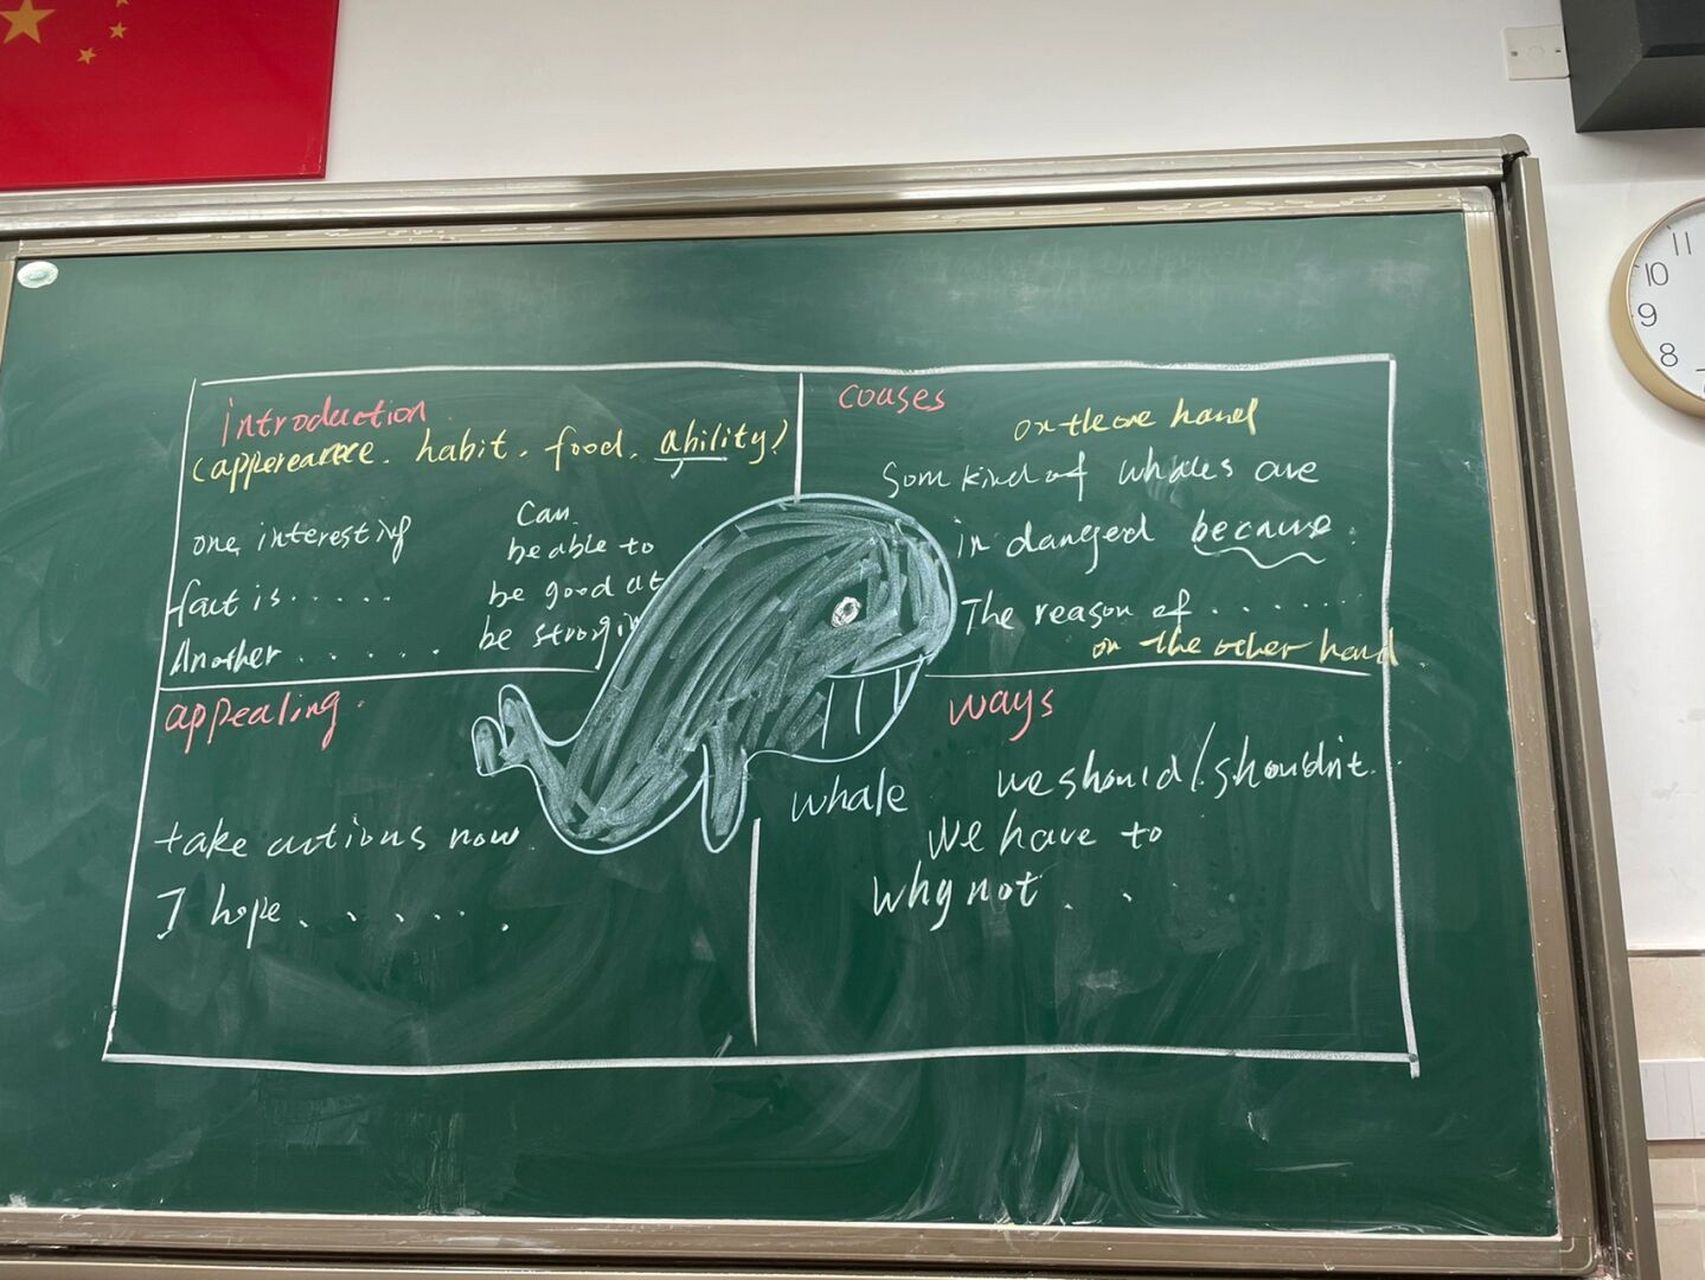 introduction
(apperearece. habit. food. ability)
one interesting
fact is.....
Another......
Can
be able to
be good at
be strong in
couses
on the one hand
Som kind of whales are
in danged because.
The reason of.......
on the other hand
appealing.
take actions now
I hope......
whale
ways
we should/shouldn't..
We have to
Why not...
11
10
9
8